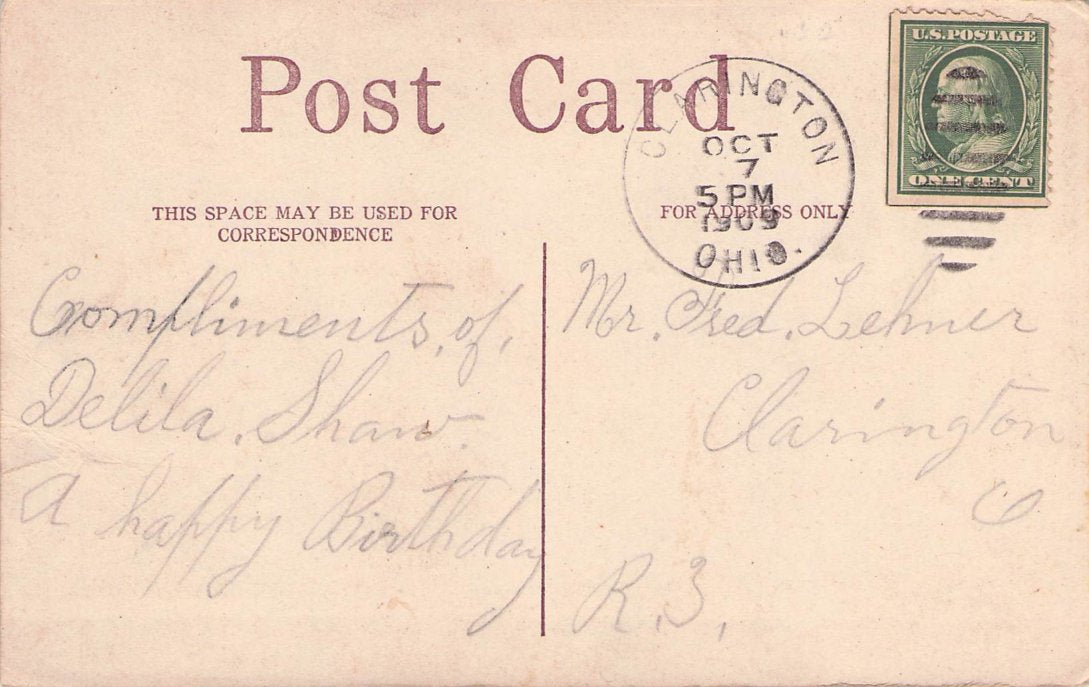 Post Card
U.S. POSTAGE
ONE CENT
CLARINGTON
OCT
7
5 PM
1909
OHIO.
THIS SPACE MAY BE USED FOR
CORRESPONDENCE
FOR ADDRESS ONLY
Compliments, of,
Delila, Shaw.
A happy Birthday
Mr. Fred. Lehner
Clarington
O
R. 3,